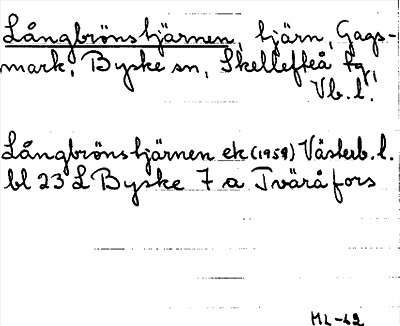 Långbrönstjärnen, tjärn, Gags-
mark, Byske sn, Skellefteå tg,
Vb. l.
Långbrönstjärnen ek (1959) Västerb. l.
bl 23 L Byske 7 a Tväråfors
ML-62